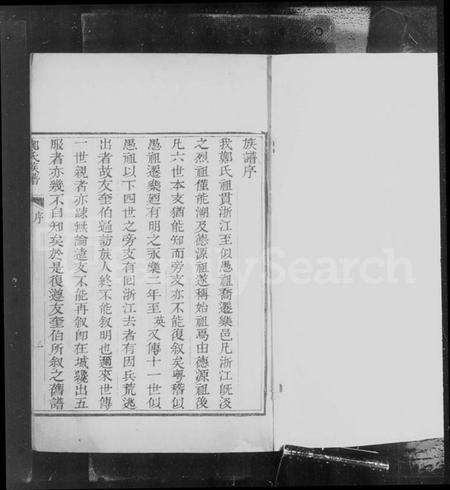 族譜序
我鄭氏祖貫浙江至似愚祖喬遷樂邑凡浙江旣沒
之烈祖僅能溯及德源祖遂稱始祖焉由德源祖後
凡六世本支猶能知而旁支亦不能復叙矣粤稽似
愚祖遷樂廼有明之永樂二年至英又傳十一世似
愚祖以下四世之旁支自回浙江去者有因兵荒逃
出者故友奎伯過訪族人終不能叙明也邇來世傳
一世親者亦疎無論遺文不能再叙卽在城驟出五
服者亦幾不自知矣於是復遵友奎伯所叙之舊譜
鄭氏族譜
序
一
FamilySearch